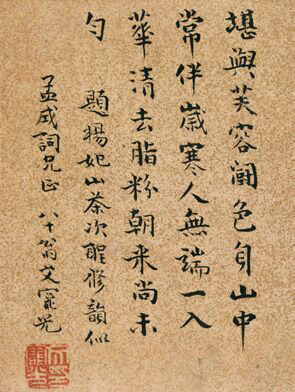 堪與芙容闘色自山中
常伴嵗寒人無端一入
華清去脂粉朝來尚未
勻
題楊妃山茶次醒修韻似
孟威詞兄正 八十翁艾